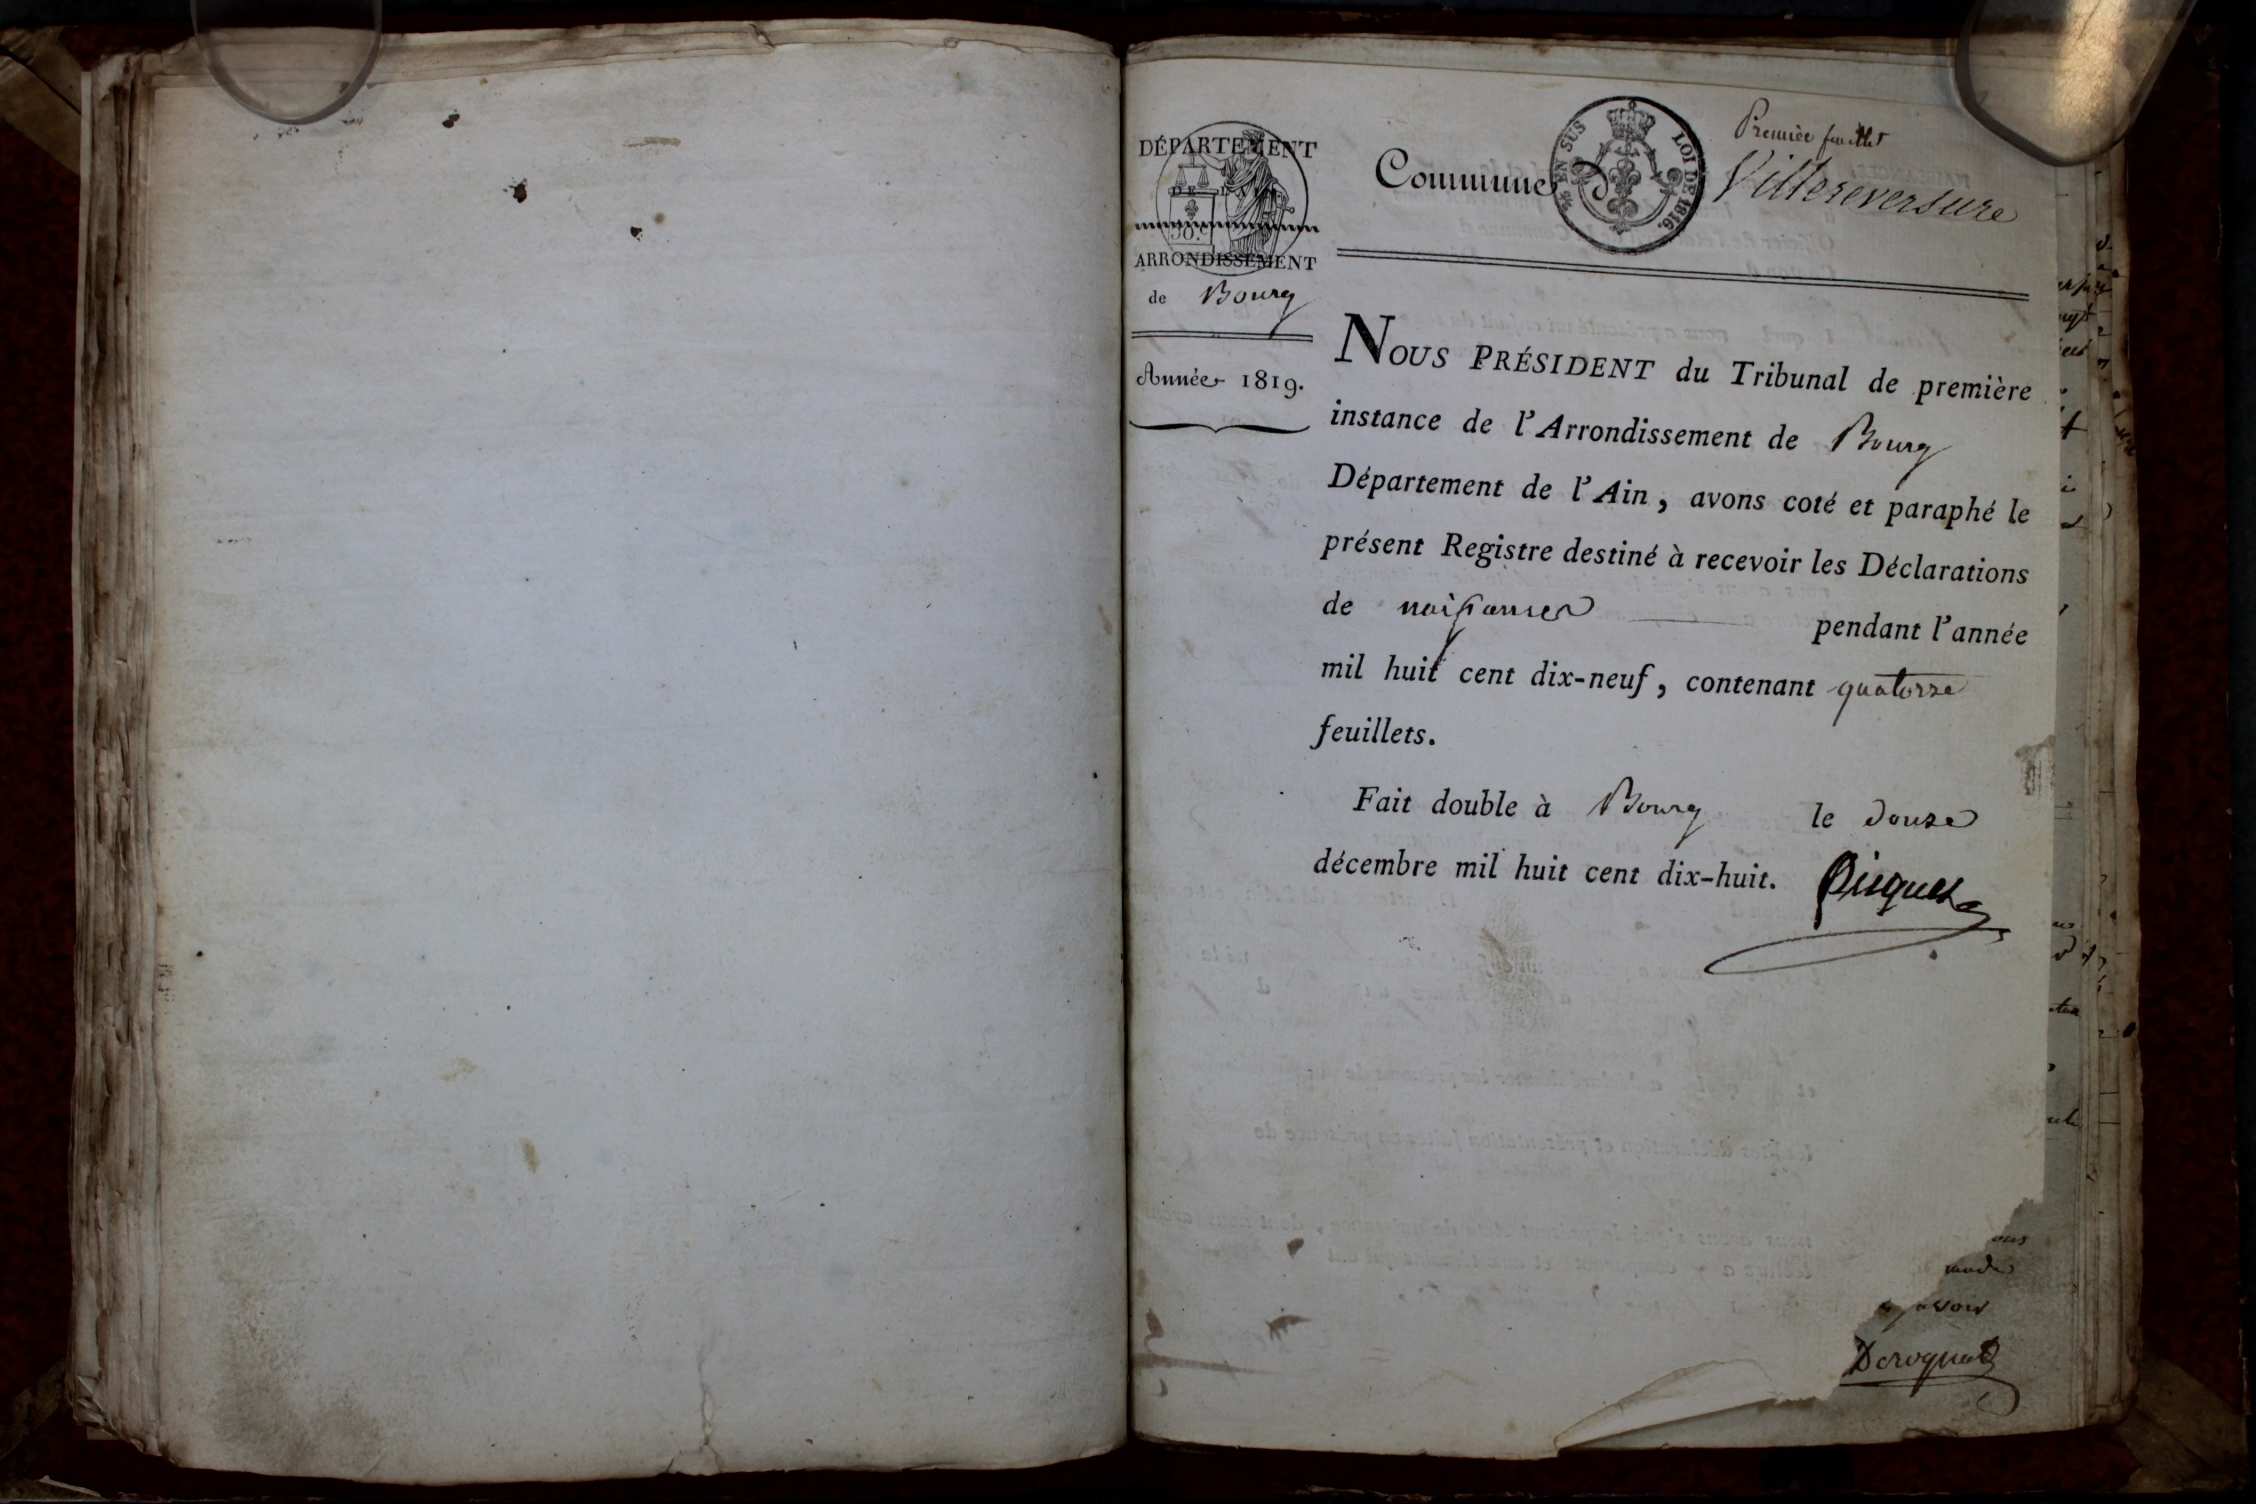 Première feuillet
DÉPARTEMENT
DE L'
ARRONDISSEMENT
de Bourg
Année 1819.
Commune d
Villereversure
¼ EN SUS LOI DE 1816.
NOUS PRÉSIDENT du Tribunal de première
instance de l'Arrondissement de Bourg
Département de l'Ain, avons coté et paraphé le
présent Registre destiné à recevoir les Déclarations
de naissances pendant l'année
mil huit cent dix-neuf, contenant quatorze
feuillets.
Fait double à Bourg le douze
décembre mil huit cent dix-huit. Picquet